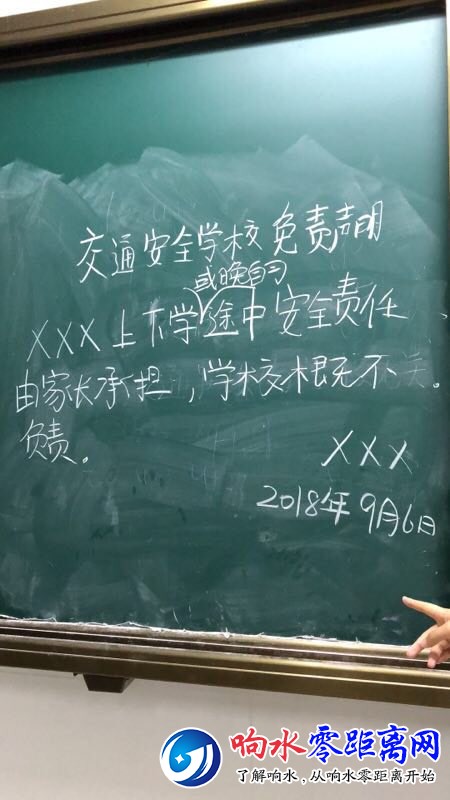 交通安全学校免责声明
或晚自习
XXX上下学途中安全责任
由家长承担，学校概不
负责。
XXX
2018年9月6日
响水零距离网
了解响水，从响水零距离开始